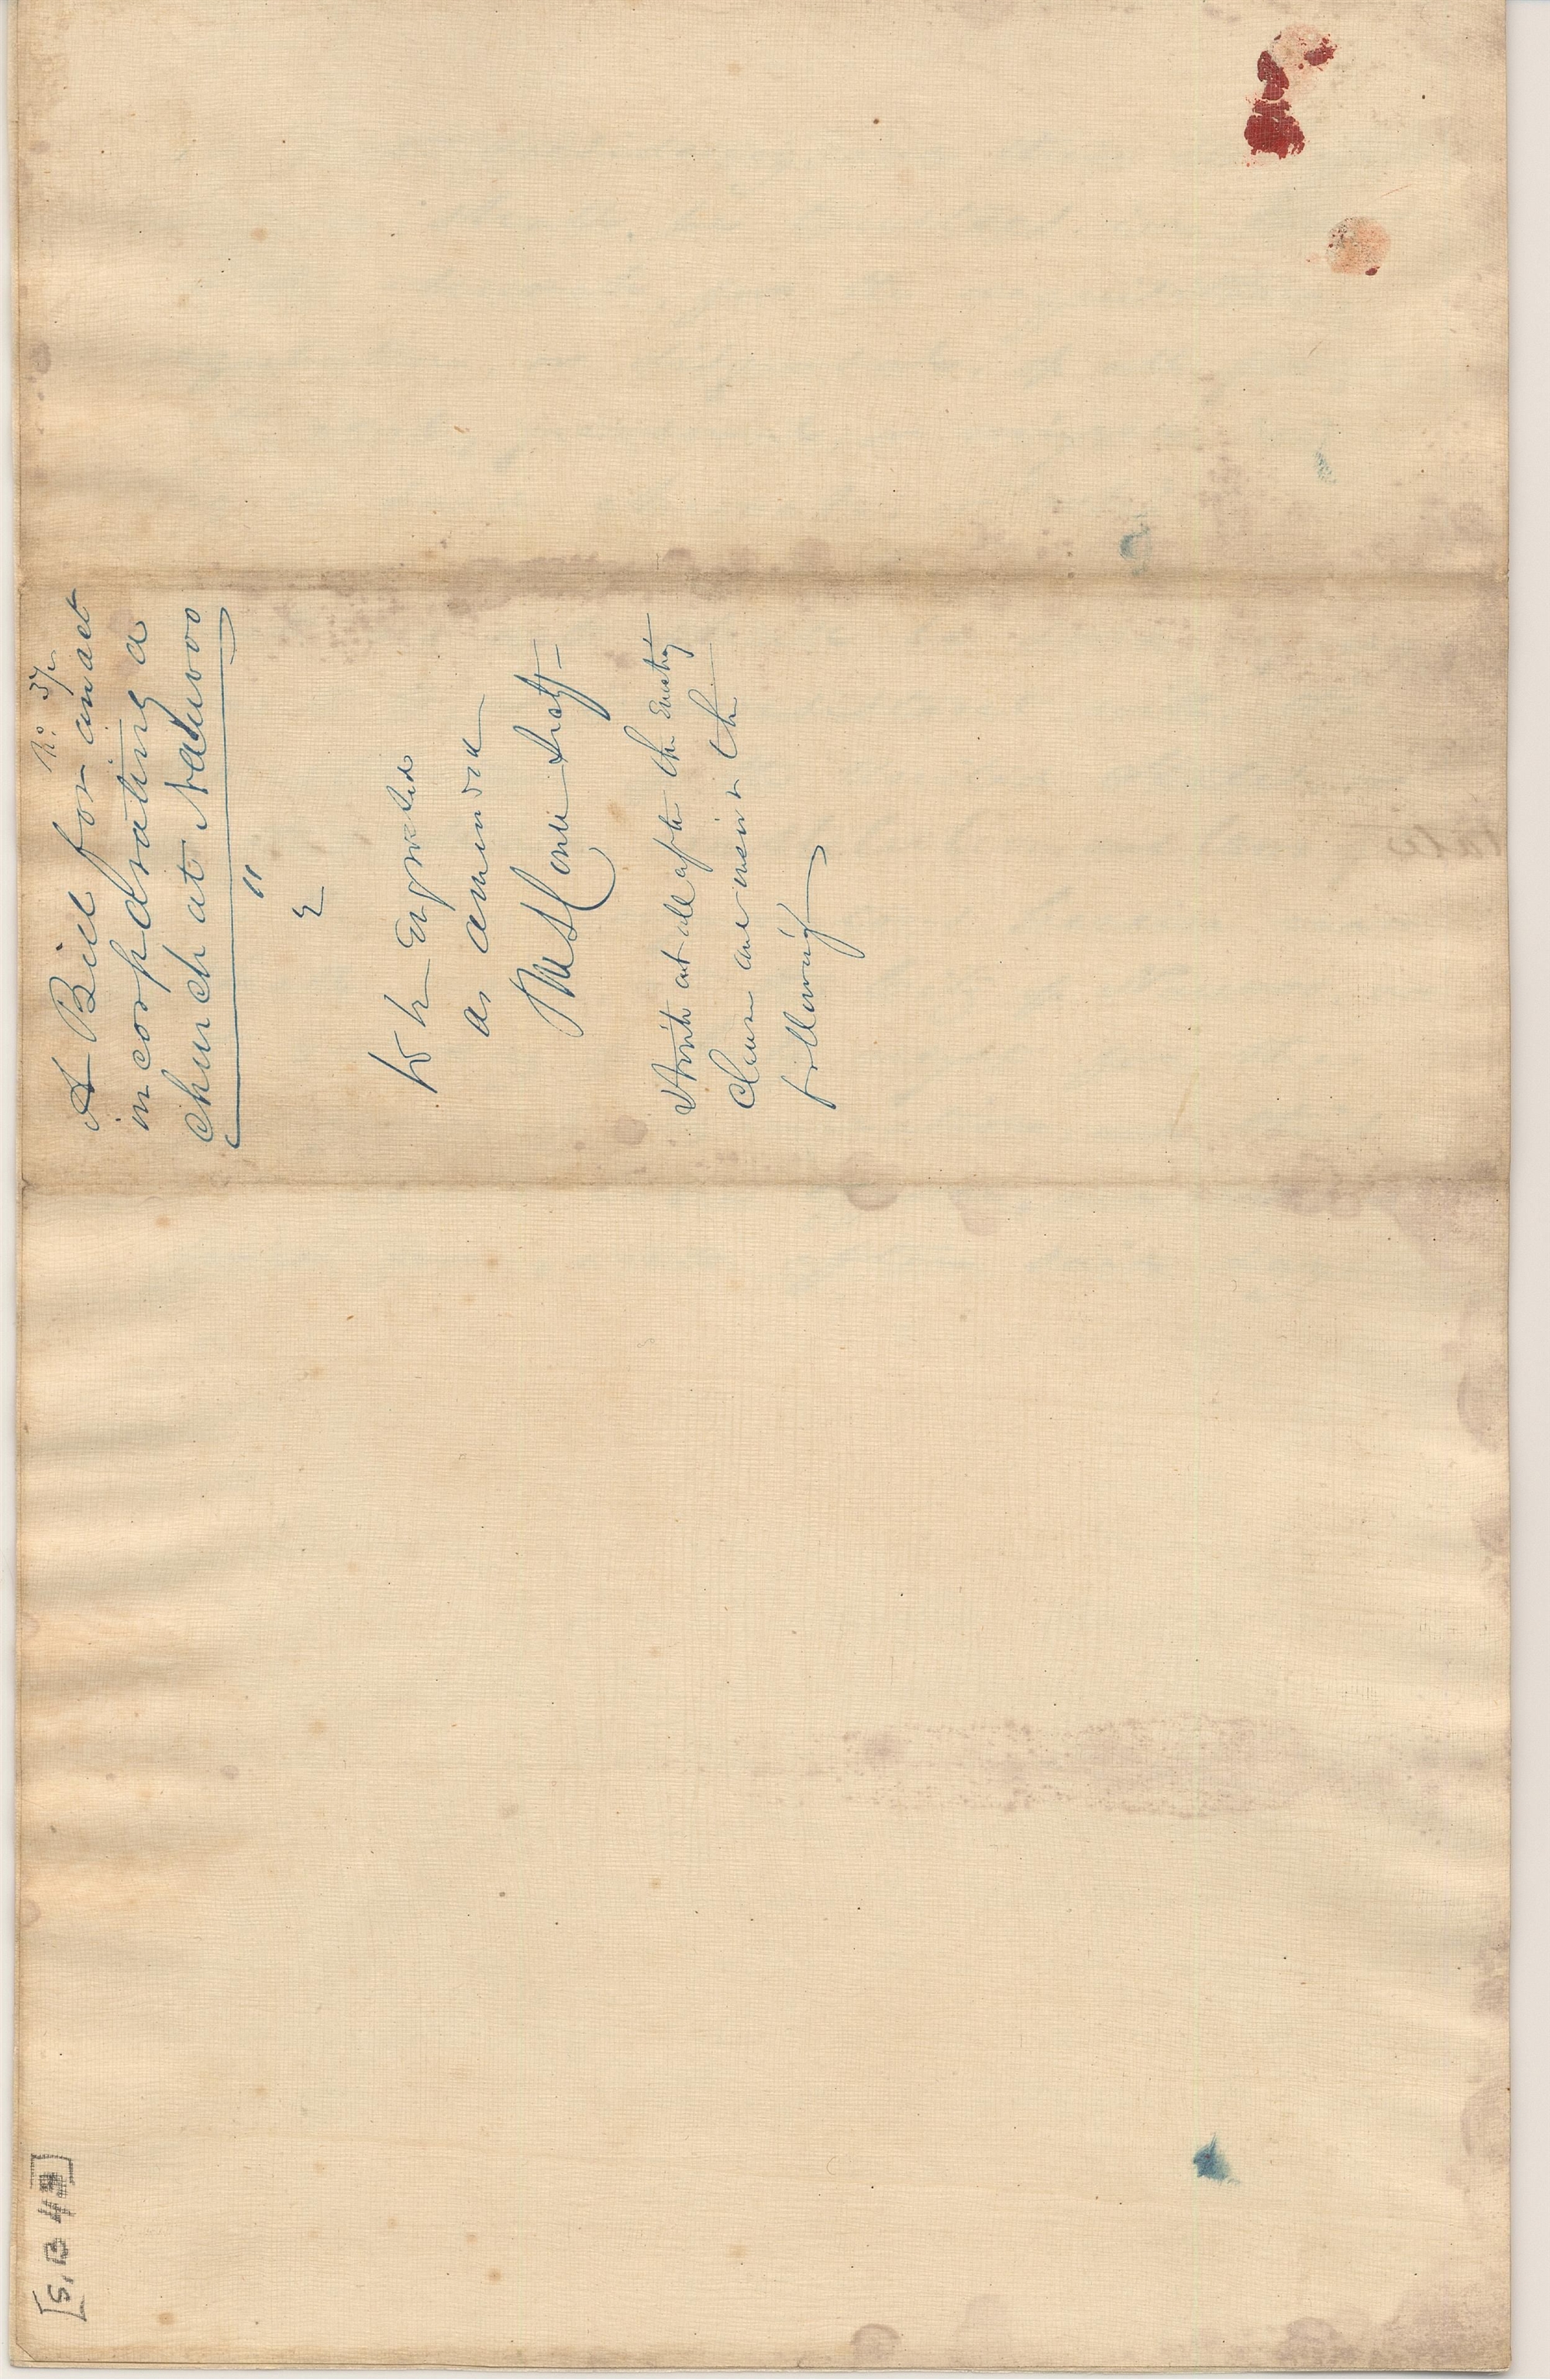 No. 37.
A Bill for an act
incorporating a
church at Nauvoo
"
To be Engrossed
as amended
Secty
Strike out all after the Enacting
Clause and insert the
following
[S, B 4